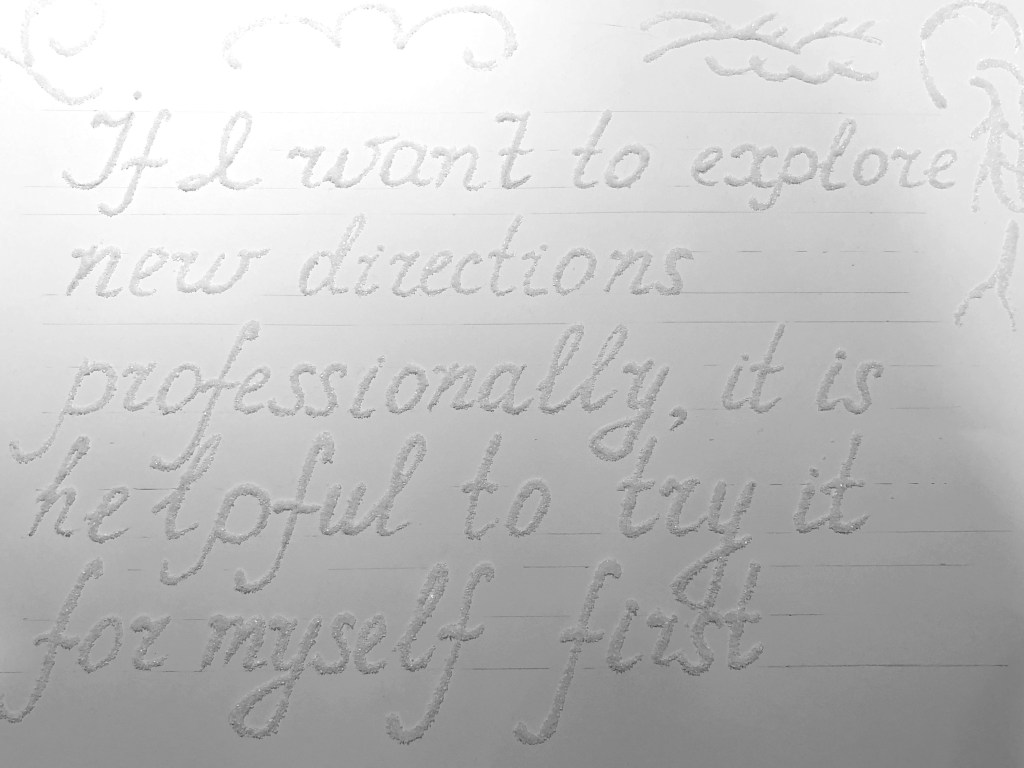 If I want to explore
new directions
professionally, it is
helpful to try it
for myself first